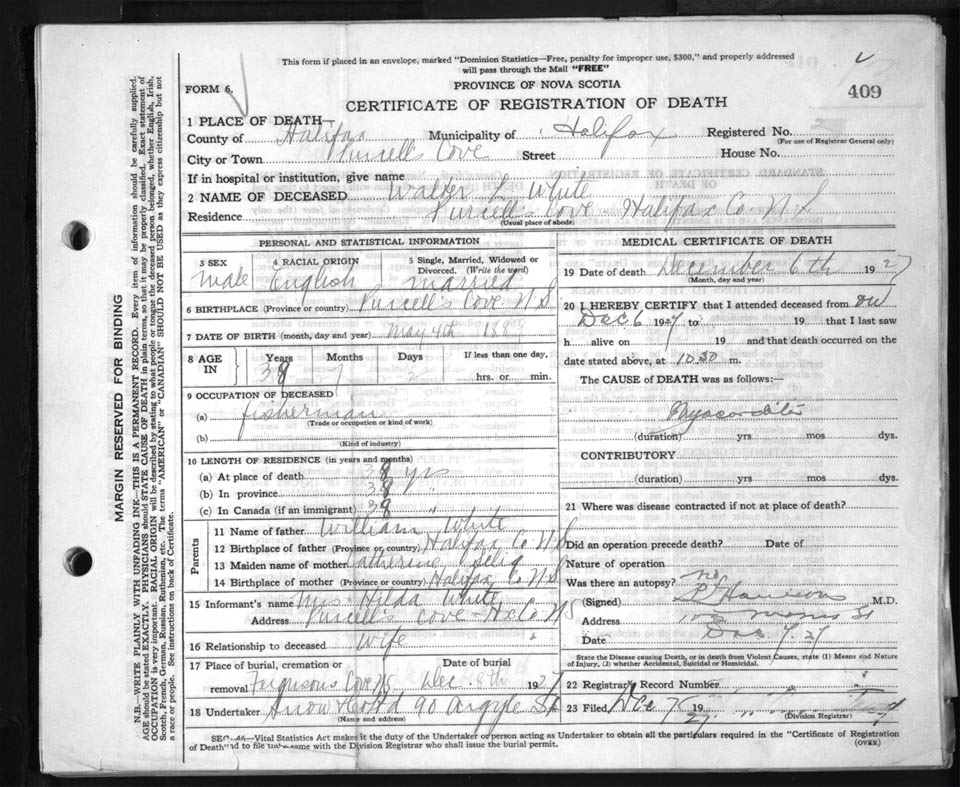 This form if placed in an envelope, marked "Dominion Statistics—Free, penalty for improper use, $300," and properly addressed
will pass through the Mail "FREE"
FORM 6.
PROVINCE OF NOVA SCOTIA
409
CERTIFICATE OF REGISTRATION OF DEATH
1 PLACE OF DEATH—
County of Halifax Municipality of Halifax Registered No.
(For use of Registrar General only)
City or Town Purcell's Cove Street House No.
If in hospital or institution, give name
2 NAME OF DECEASED Walter L White
Residence Purcell's Cove Halifax Co. N.S.
(Usual place of abode)
PERSONAL AND STATISTICAL INFORMATION
3 SEX 4 RACIAL ORIGIN 5 Single, Married, Widowed or
Divorced. (Write the word)
Male English married
6 BIRTHPLACE (Province or country) Purcell's Cove N.S
7 DATE OF BIRTH (month, day and year) May 4th
8 AGE IN Years Months Days If less than one day,
38 7 2 hrs. or min.
9 OCCUPATION OF DECEASED
(a) fisherman
(Trade or occupation or kind of work)
(b)
(Kind of industry)
10 LENGTH OF RESIDENCE (in years and months)
(a) At place of death 38 yrs
(b) In province 38 "
(c) In Canada (if an immigrant) 38 "
Parents
11 Name of father William White
12 Birthplace of father (Province or country) Halifax Co N.S
13 Maiden name of mother Catherine
14 Birthplace of mother (Province or country) Halifax Co N.S
15 Informant's name Mrs Hilda White
Address Purcell's Cove Hx Co NS
16 Relationship to deceased Wife
17 Place of burial, cremation or Date of burial
removal Fergusons Cove NS Dec. 8th 1927
18 Undertaker Snow & Co Ltd 90 Argyle St
(Name and address)
MEDICAL CERTIFICATE OF DEATH
19 Date of death December 6th 1927
(Month, day and year)
20 I HEREBY CERTIFY that I attended deceased from on
Dec 6 1927 to 19 that I last saw
h alive on 19 and that death occurred on the
date stated above, at 10 30 m.
The CAUSE of DEATH was as follows:—
Myocarditis
(duration) yrs mos dys.
CONTRIBUTORY
(duration) yrs mos dys.
21 Where was disease contracted if not at place of death?
Did an operation precede death? Date of
Nature of operation
Was there an autopsy? no
(Signed) M.D.
Address Morris St
Date Dec 7. 27
State the Disease causing Death, or in death from Violent Causes, state (1) Means and Nature
of Injury, (2) whether Accidental, Suicidal or Homicidal.
22 Registrar's Record Number
23 Filed Dec 7 1927
(Division Registrar)
SEC. 46—Vital Statistics Act makes it the duty of the Undertaker or person acting as Undertaker to obtain all the particulars required in the "Certificate of Registration
of Death" and to file the same with the Division Registrar who shall issue the burial permit.
(OVER)
MARGIN RESERVED FOR BINDING
N.B.—WRITE PLAINLY WITH UNFADING INK—THIS IS A PERMANENT RECORD. Every item of information should be carefully supplied.
AGE should be stated EXACTLY. PHYSICIANS should STATE CAUSE OF DEATH in plain terms, so that it may be properly classified. Exact statement of
OCCUPATION is very important. RACIAL ORIGIN will be described by stating to what people or tongue the deceased person belonged, whether English, Irish,
Scotch, French, German, Russian, Ruthenian, etc. The terms "AMERICAN" or "CANADIAN" SHOULD NOT BE USED as they express citizenship but not
a race or people. See instructions on back of Certificate.